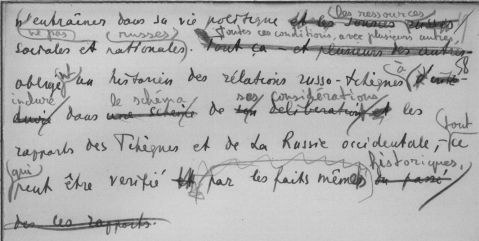 les ressources
s'entraîner dans sa vie politique et les
ne pas russes toutes ces conditions, avec plusieurs autres,
sociales et nationales. Tout ça - et plusieurs des autres
58
obligent un historien des rélations russo-tchèques à
inclure le schéma ses considérations
dans une schème de son délibération et les
tout
rapports des Tchèques et de la Russie occidentale, - ce
qui historiques,
peut être verifié par les faits mêmes du passé
des ces rapports.